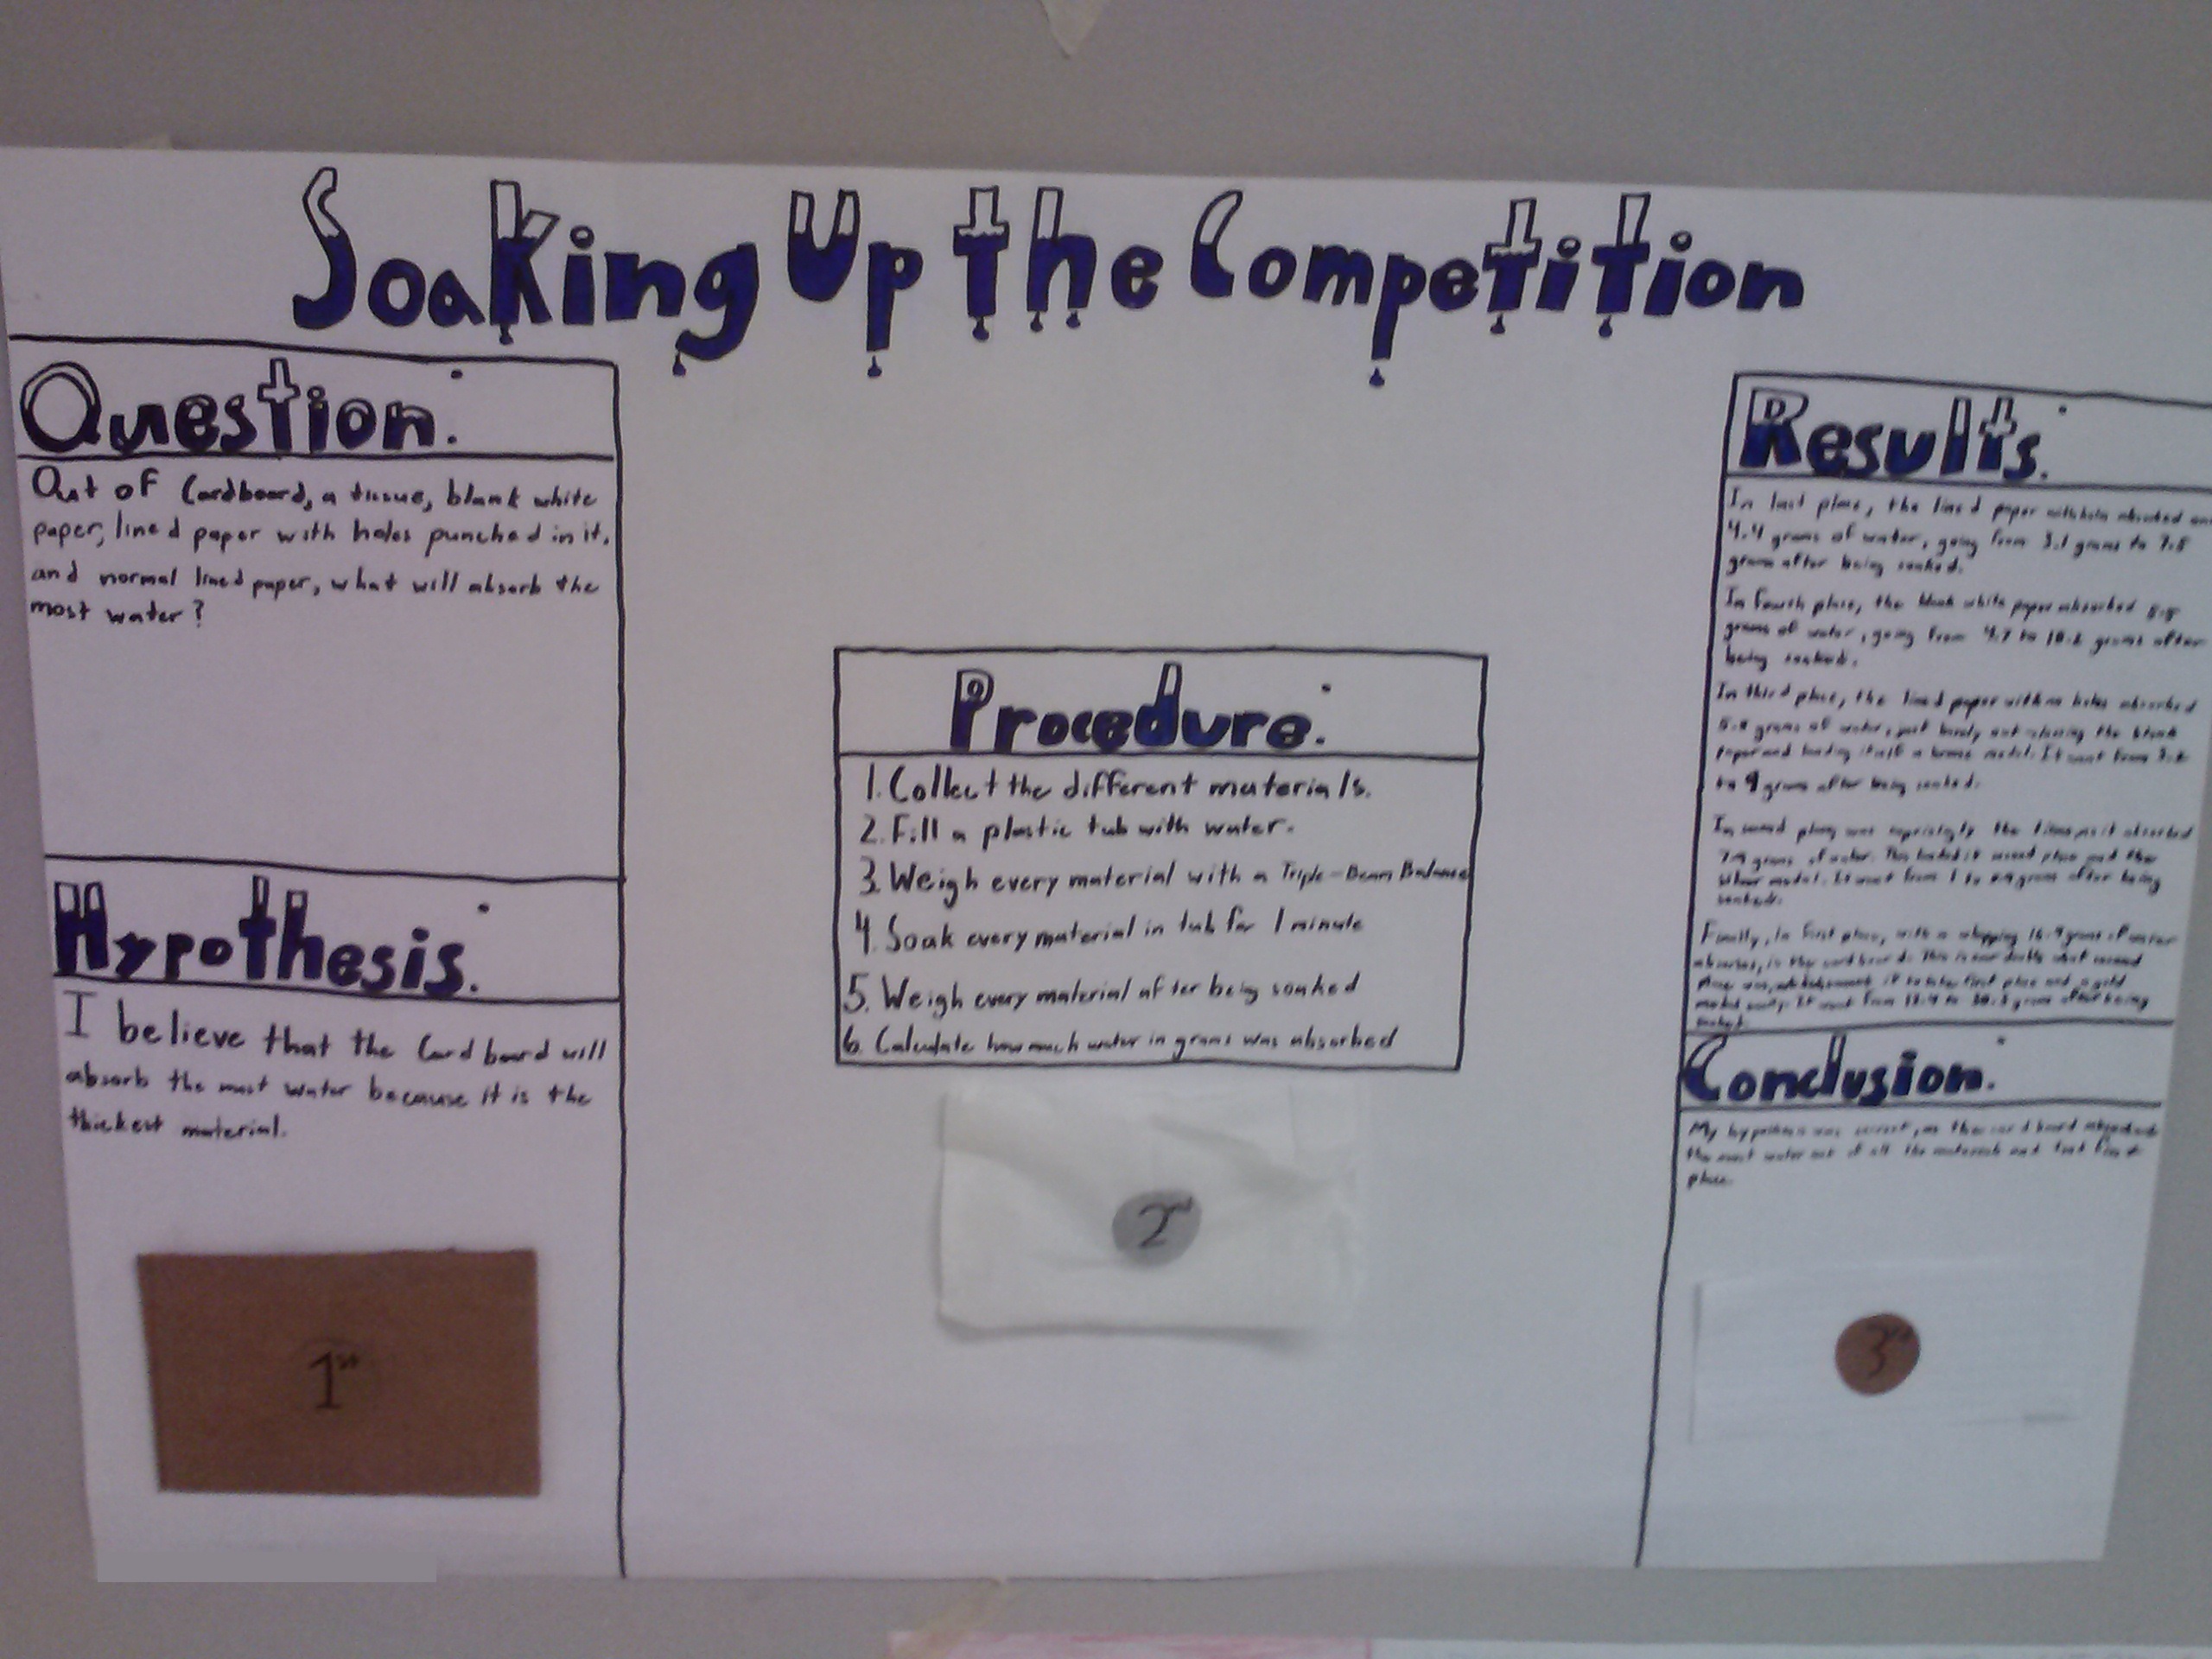 Soaking Up the Competition
Question:
Out of Cardboard, a tissue, blank white
paper, lined paper with holes punched in it,
and normal lined paper, what will absorb the
most water?
Hypothesis:
I believe that the Cardboard will
absorb the most water because it is the
thickest material.
1st
Procedure:
1. Collect the different materials.
2. Fill a plastic tub with water.
3. Weigh every material with a Triple-Beam Balance
4. Soak every material in tub for 1 minute
5. Weigh every material after being soaked
6. Calculate how much water in grams was absorbed
2nd
Results:
In last place, the lined paper with holes absorbed
4.4 grams of water, going from 3.1 grams to 7.5
grams after being soaked.
In fourth place, the blank white paper absorbed 5.5
grams of water, going from 4.7 to 10.2 grams after
being soaked.
In third place, the lined paper with no holes absorbed
grams of water, just barely out-classing the blank
paper and landing itself a bronze medal. It went from
to 9 grams after being soaked.
In second place, was suprisingly the absorbed
7.9 grams of water. This landed it second place and the
silver medal. It went from 1 to 8.9 grams after being
soaked.
Finally, in first place, with a whopping 16.9 grams of water
is the cardboard. This is over double what second
place was, it to take first place and a gold
medal easily. It went from to grams after being
soaked.
Conclusion:
My hypothesis was correct, as the cardboard absorbed
the most water out of all the materials and took first
place.
3rd